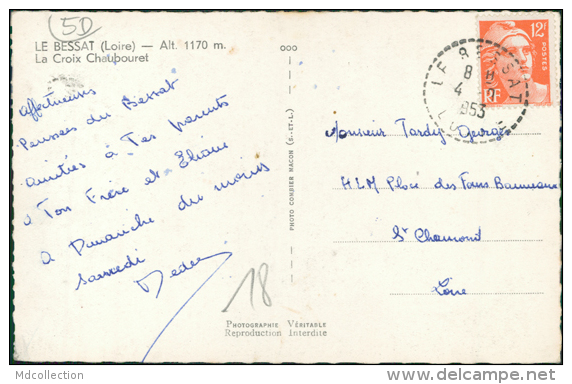 5D
LE BESSAT (Loire) — Alt. 1170 m.
La Croix Chaubouret
ooo
12F
POSTES
RF
LE BESSAT
8 H
8
4
1953
LOIRE
Affectueuses
Pensées du Bessat
amitiés à Tes parents
à Ton Frère et Eliane
a Dimanche du moins
Samedi
PHOTO COMBIER MACON (S.-ET-L.)
Monsieur Tardy Georges
HLM Place des Fours Banneaux
St Chamont
Loire
18
PHOTOGRAPHIE VÉRITABLE
Reproduction Interdite
Mdcollection
delcampe.net